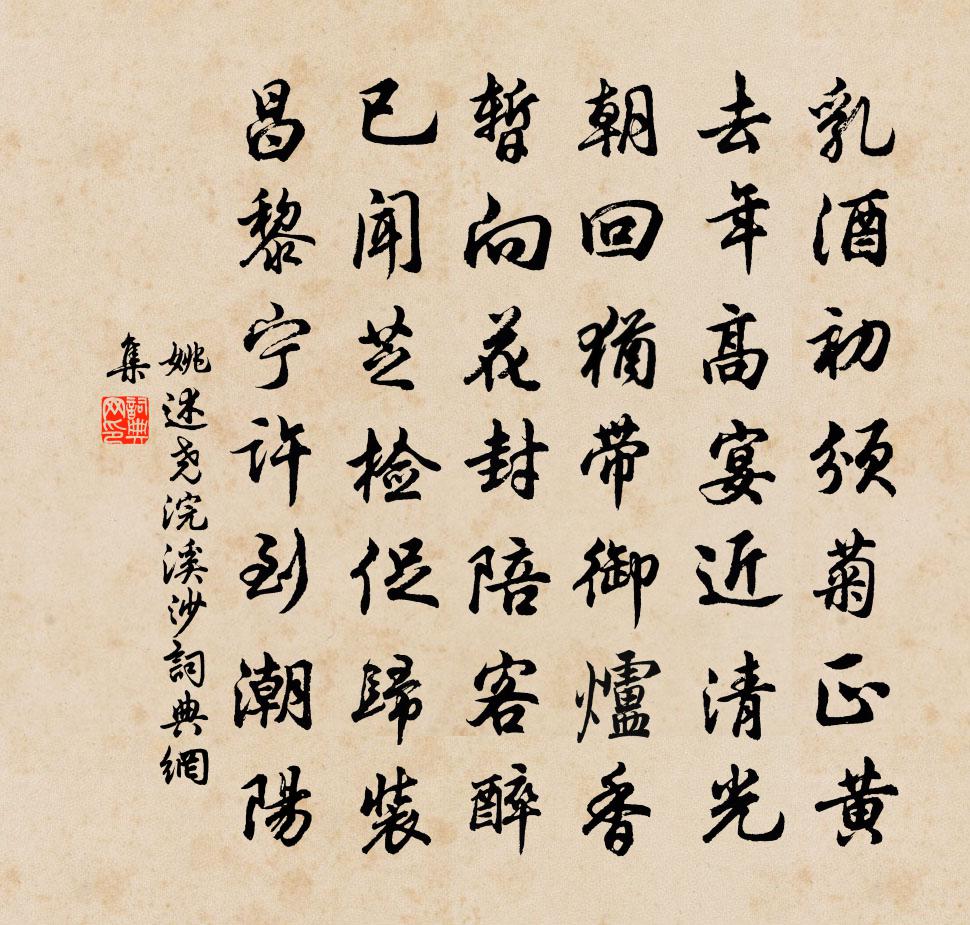 乳酒初頒菊正黄
去年高宴近清光
朝回猶带御爐香
暫向花封陪客醉
已闻芝检促歸装
昌黎宁許到潮陽
姚述尧浣溪沙詞典網
集
詞典
网印